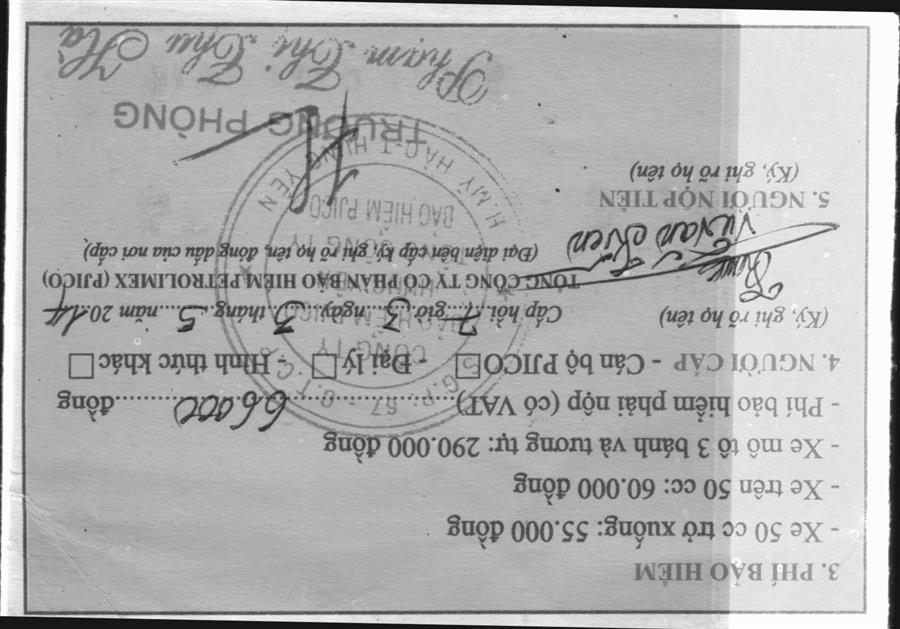 3. PHÍ BẢO HIỂM
- Xe 50 cc trở xuống: 55.000 đồng
- Xe trên 50 cc: 60.000 đồng
- Xe mô tô 3 bánh và tương tự: 290.000 đồng
- Phí bảo hiểm phải nộp (có VAT)..........66000..........đồng
4. NGƯỜI CẤP - Cán bộ PJICO - Đại lý - Hình thức khác
(Ký, ghi rõ họ tên)
Cấp hồi 7 giờ, ngày 3 tháng 5 năm 2014
TỔNG CÔNG TY CỔ PHẦN BẢO HIỂM PETROLIMEX (PJICO)
(Đại diện bên cấp ký, ghi rõ họ tên, đóng dấu của nơi cấp)
5. NGƯỜI NỘP TIỀN
(Ký, ghi rõ họ tên)
CÔNG TY
BẢO HIỂM PJICO
H. MỸ HÀO - T. HƯNG YÊN
TRƯỞNG PHÒNG
Phạm Thị Thu Hà